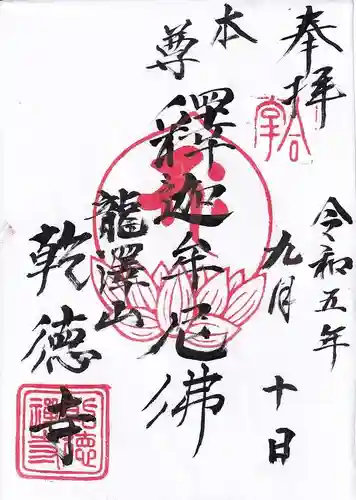 奉拝
令和五年
九月
十日
本尊
釋迦牟尼佛
龍澤山
乾徳寺
合掌